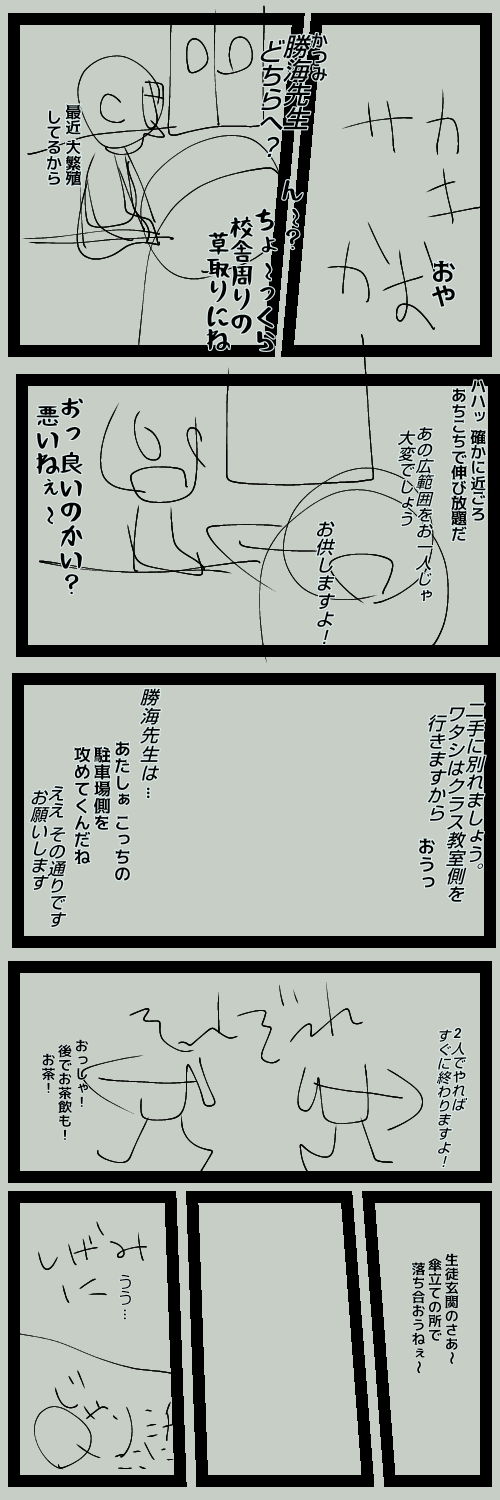 おや
勝海先生
かつみ
どちらへ?
ん~?
ちょ~っくら
校舎周りの
草取りにね
最近 大繁殖
してるから
ハハッ 確かに近ごろ
あちこちで伸び放題だ
あの広範囲をお一人じゃ
大変でしょう
お供しますよ!
おっ良いのかい?
悪いねぇ~
二手に別れましょう。
ワタシはクラス教室側を
行きますから
おうっ
勝海先生は…
あたしぁ こっちの
駐車場側を
攻めてくんだね
ええ その通りです
お願いします
2人でやれば
すぐに終わりますよ!
それぞれ
おっしゃ!
後でお茶飲も!
お茶!
生徒玄関のさあ~
傘立ての所で
落ち合おうねぇ~
しげみ
に
うう…